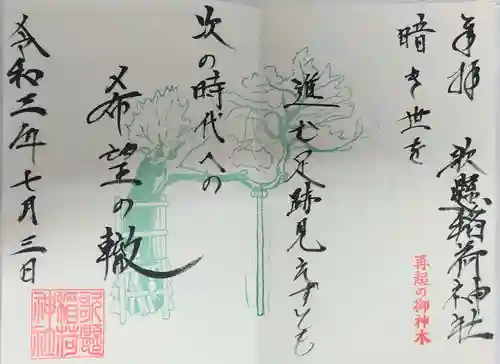 奉拝
歌懸稲荷神社
暗き世を
進む足跡見えずとも
次の時代への
希望の轍
令和三年七月三日
再起の御神木
歌懸
稲荷
神社